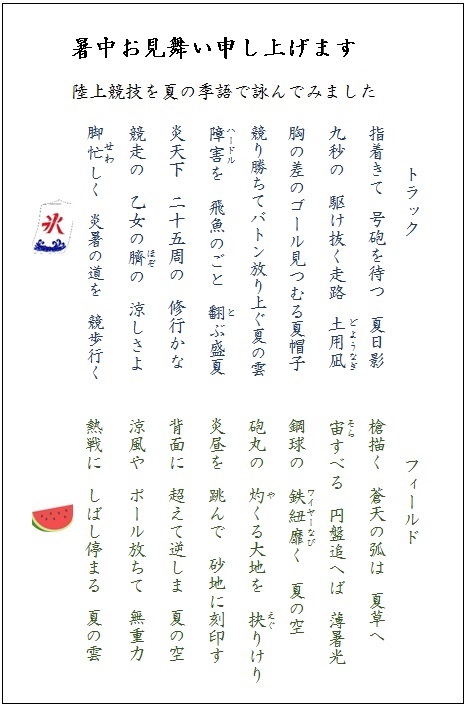 暑中お見舞い申し上げます
陸上競技を夏の季語で詠んでみました
トラック
指着きて 号砲を待つ 夏日影
九秒の 駆け抜く走路 土用凪
どようなぎ
胸の差のゴール見つむる夏帽子
競り勝ちてバトン放り上ぐ夏の雲
障害を 飛魚のごと 翻ぶ盛夏
ハードル
と
炎天下 二十五周の 修行かな
競走の 乙女の臍の 涼しさよ
ほぞ
脚忙しく 炎暑の道を 競歩行く
せわ
氷
フィールド
槍描く 蒼天の弧は 夏草へ
宙すべる 円盤追へば 薄暑光
そら
鋼球の 鉄紐靡く 夏の空
ワイヤーなび
砲丸の 灼くる大地を 抉りけり
や
えぐ
炎昼を 跳んで 砂地に刻印す
背面に 超えて逆しま 夏の空
涼風や ポール放ちて 無重力
熱戦に しばし停まる 夏の雲